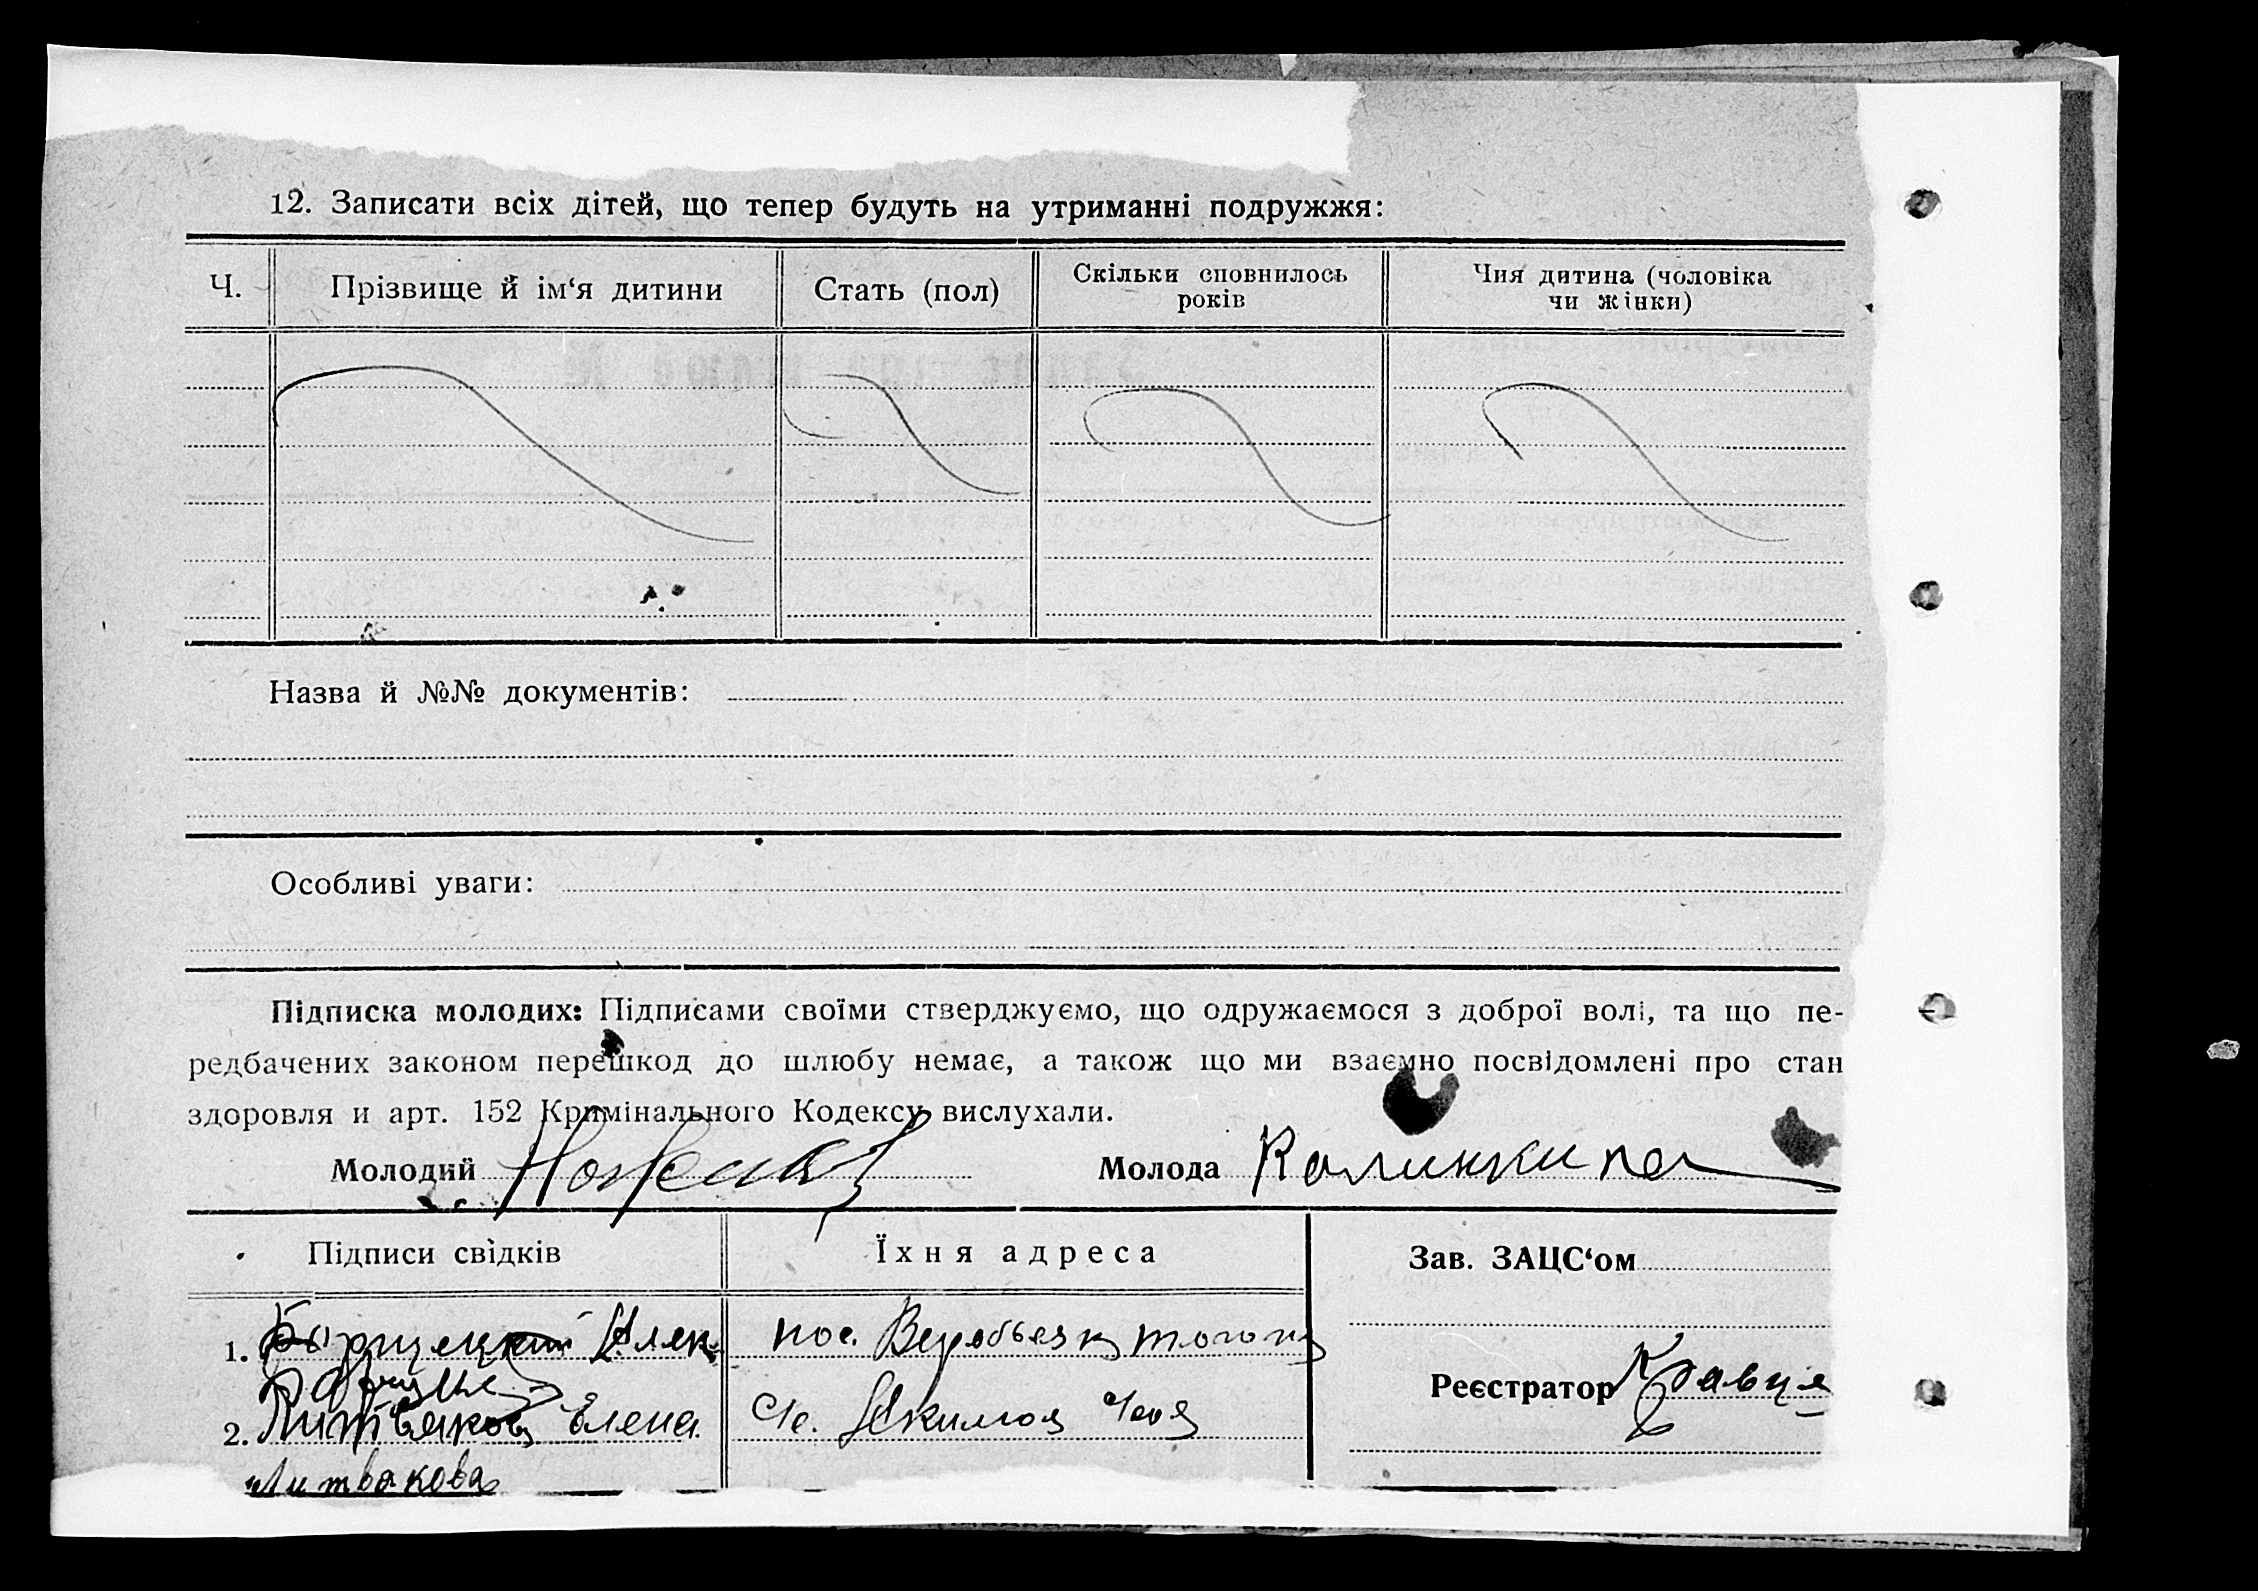 12. Записати всіх дітей, що тепер будуть на утриманні подружжя:
Ч.
Прізвище й ім‘я дитини
Стать (пол)
Скільки сповнилось
років
Чия дитина (чоловіка
чи жінки)
Назва й №№ документів:
Особливі уваги:
Підписка молодих: Підписами своїми стверджуємо, що одружаємося з доброї волі, та що пе-
редбачених законом перешкод до шлюбу немає, а також що ми взаємно посвідомлені про стан
здоровля и арт. 152 Кримінального Кодексу вислухали.
Молодий
Молода Калинкина
Підписи свідків
Їхня адреса
Зав. ЗАЦС‘ом
1.
пос.
Реєстратор Кравця
2. Литвякова Елена
Литвакова